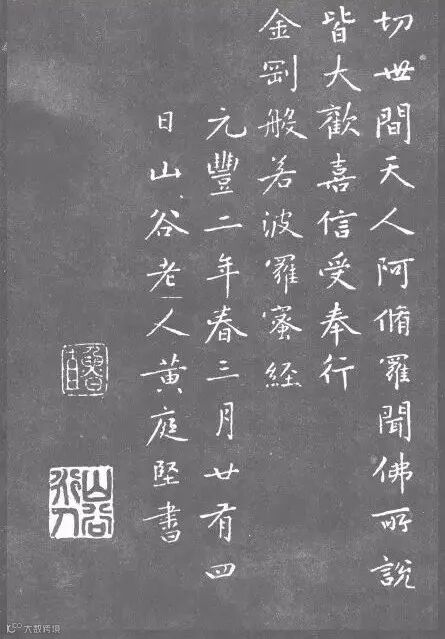 切世間天人阿脩羅聞佛所說
皆大歡喜信受奉行
金剛般若波羅蜜經
元豐二年春三月廿有四
日山谷老人黃庭堅書
魯直
山谷
大数跨境